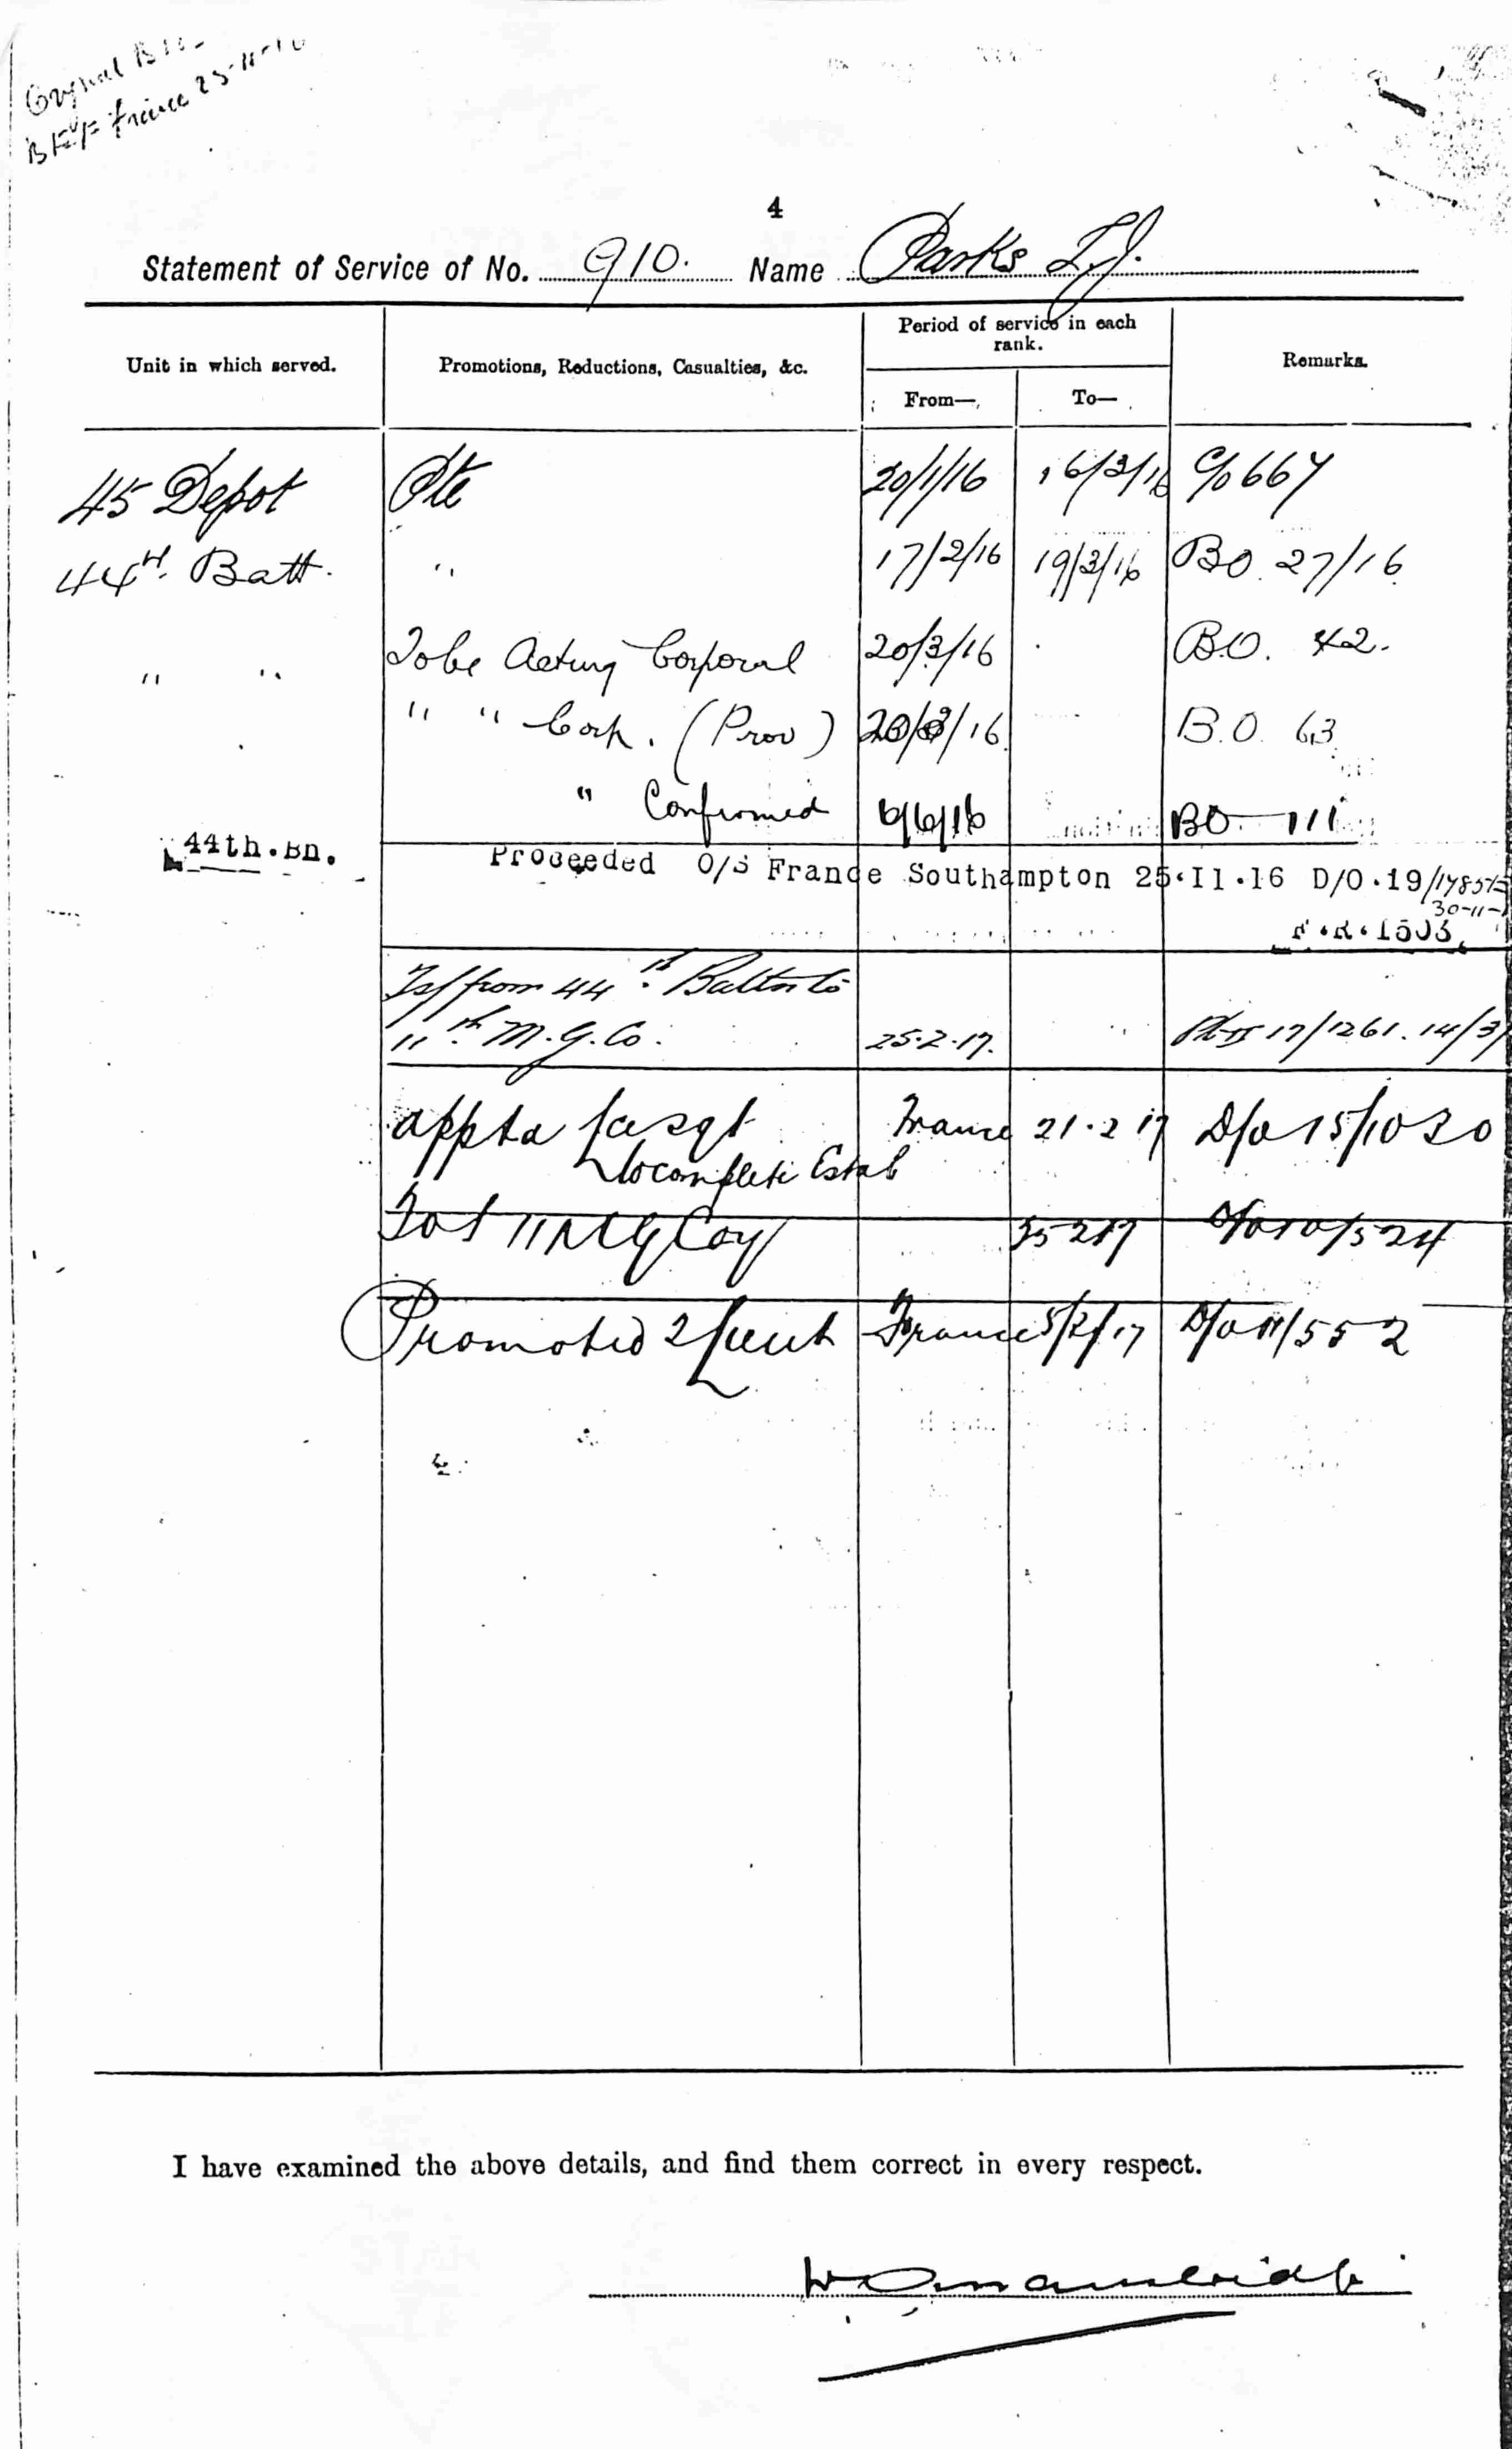 Original
BEF France 25-11-16
4
Statement of Service of No. 910. Name Parks
Unit in which served.
Promotions, Reductions, Casualties, &c.
Period of service in each rank.
Remarks.
From—
To—
45 Depot Pte 20/1/16 16/2/16 C/o 667
44th Batt. " 17/2/16 19/3/16 BO. 27/16
" " To be Acting Corporal 20/3/16 B.O. 42.
" " Corp. (Prov) B.O. 63
" Confirmed 6/6/16 BO 111
44th.Bn. Proceeded O/S France Southampton 25.11.16 D/O.19/
30-11-
F.R.1503.
Tsf from 44th Battn to
11th M.G. Co. 25.2.17. 17/1261. 14/3/
appta Sgt France 21.2.17 D/O 15/1030
to complete Estab
11 M G Coy 25 2 17
Promoted 2 Lieut France D/O 11/552
I have examined the above details, and find them correct in every respect.